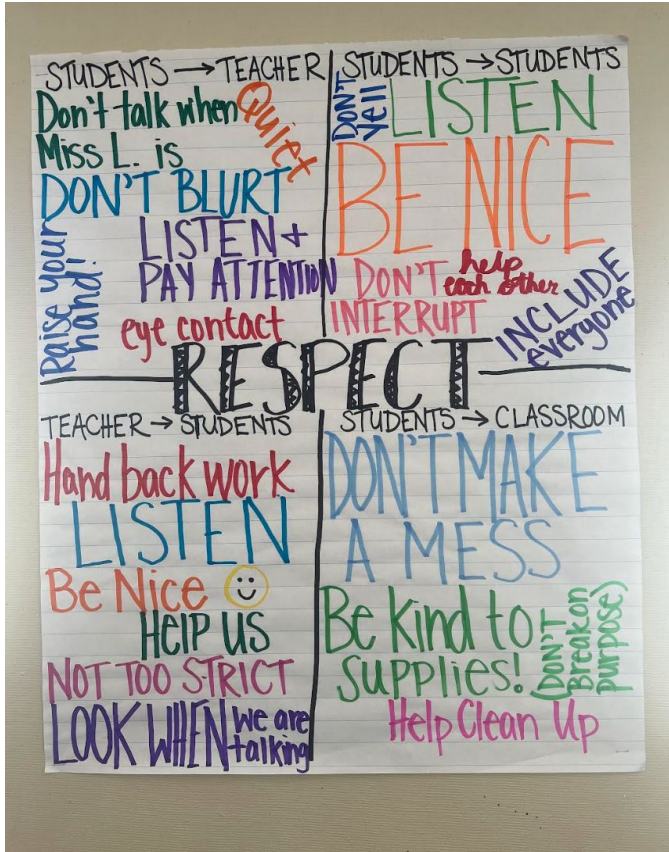 STUDENTS → TEACHER
Don't talk when
Miss L. is
Quiet
DON'T BLURT
LISTEN +
PAY ATTENTION
Raise your
hand!
eye contact
STUDENTS → STUDENTS
DON'T
Yell
LISTEN
BE NICE
DON'T
INTERRUPT
help
each other
INCLUDE
everyone
RESPECT
TEACHER → STUDENTS
Hand back work
LISTEN
Be Nice
HELP US
NOT TOO STRICT
LOOK WHEN we are
talking
STUDENTS → CLASSROOM
DON'T MAKE
A MESS
Be Kind to
supplies!
(DON'T
Break on
purpose)
Help Clean Up